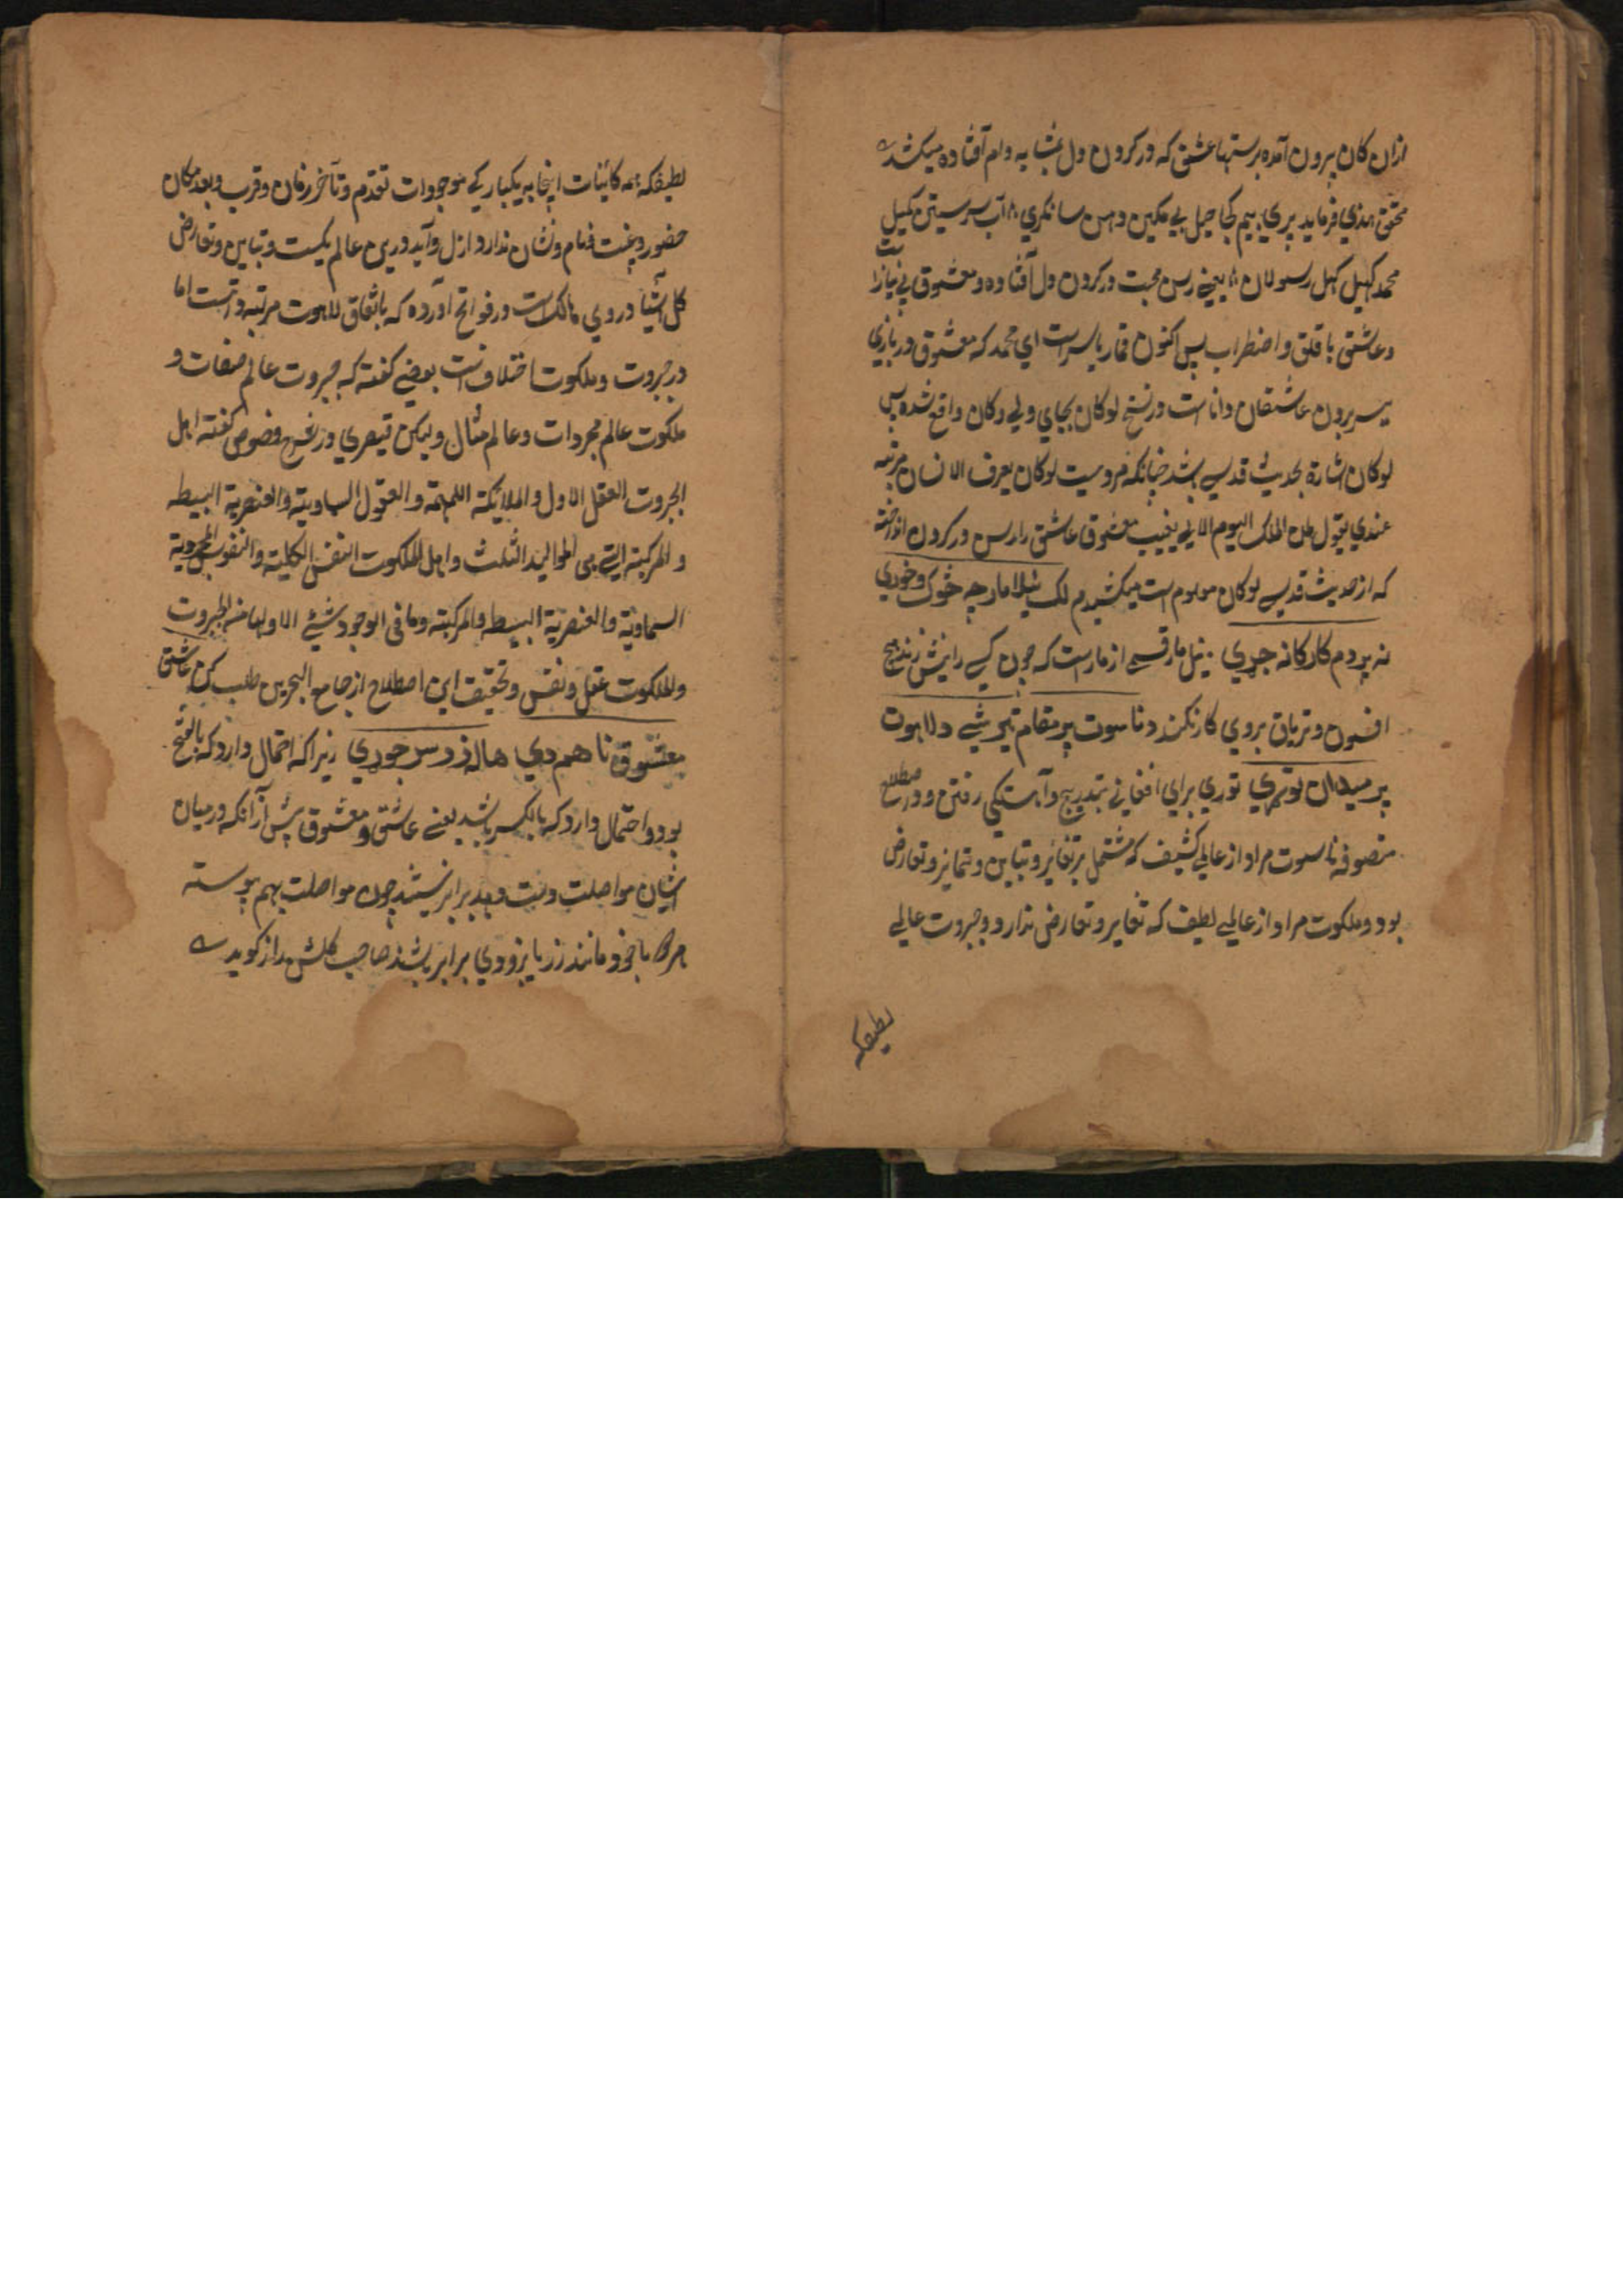 ازان کان بیرون آمده برستها عشق که در کردن دل بمثابه دام افتاده میکشد
محقق هندی فرماید پری پیم کجا جیل بی مکین دهن سانکری ۸ آب سر سیتی مکیل
محمد کهیل کهل رسولان ۸ یعنی رسن محبت در کردن دل افتاده و معشوق بی نیاز است
و عاشق با قلق و اضطراب پس اکنون قمار با سر است ای محمد که معشوق در بازی
سر بردن عاشقان دانا است و در نسخ لوکان بجای ولی دکان واقع شده پس
لوکان اشارة بحدیث قدسی باشد چنانکه مرویست لو کان یعرف الانسان مرتبه
عندی یقول لمن الملک الیوم الا لی یغیب معشوق عاشق را رسن در کردن انداخته
که از حدیث قدسی لوکان معلوم است میکشیدم لک نیلا مار چه څوک وخوري
نه پر دم کار کا نه جری نیل مار قسمی از مار است که چون کسی را نیش زند هیچ
افسون و تریاق بروی کار نکند د ناسوت پر مقام تیر شي د لاهوت
پر میدان توري توري برای افغانی بتدریج و آهستکی رفتن و در اصطلاح
متصوفه ناسوت مراد از عالمی کثیف که مشتمل بر تغایر و تباین و تمایز و تعارض
بود و ملکوت مراد از عالمی لطیف که تغایر و تعارض ندارد و جبروت عالمی
لطیفکه
لطیفکه همه کائینات اینجا به یکبارکی موجودات تقدم و تأخر زمان و قرب و بعد مکان
حضور و غیبت و نام و نشان ندارد ازل و ابد درین عالم یکیست و تباین و تعارض
کل اشیا در وی هالک است و در فواتح آورده که باتفاق لاهوت مرتبه ذاتست اما
در جبروت و ملکوت اختلاف است بعضی کفته که جبروت عالم صفات و
ملکوت عالم مجردات و عالم مثال و لیکن قیصری در شرح فصوص کفته اهل
الجبروت العقل الاول و الملایکة المهیمة و العقول السماویة و العنصریة البسیطه
و المرکبة التی هی الموالید الثلث و اهل الملکوت النفس الکلیة و النفوس المجردیة
السماویة و العنصریة البسیطه و المرکبة و ما فی الوجود شیٔ الا و لها من الجبروت
و الملکوت عقل و نفس و تحقیق این اصطلاح از جامع البحرین طلب کن عاشق
معشوق نا هم دي هاله زر وس جوري زیرا که احتمال دارد که بالفتح
بود و احتمال دارد که بالکسر باشد یعنی عاشق و معشوق پیش از انکه در میان
ایشان مواصلت دست دهد برابر نیستند چون مواصلت بهم پیوسته
هر کاه با خود مانند زر با یز ووی برابر باشند صاحب کلشن راز کوید